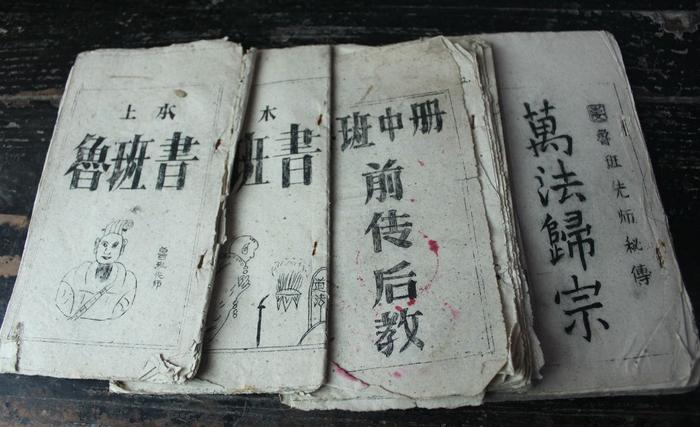 上本
魯班書
魯班先师
木
班書
班中册
前传后教
魯班先师秘傳
萬法歸宗